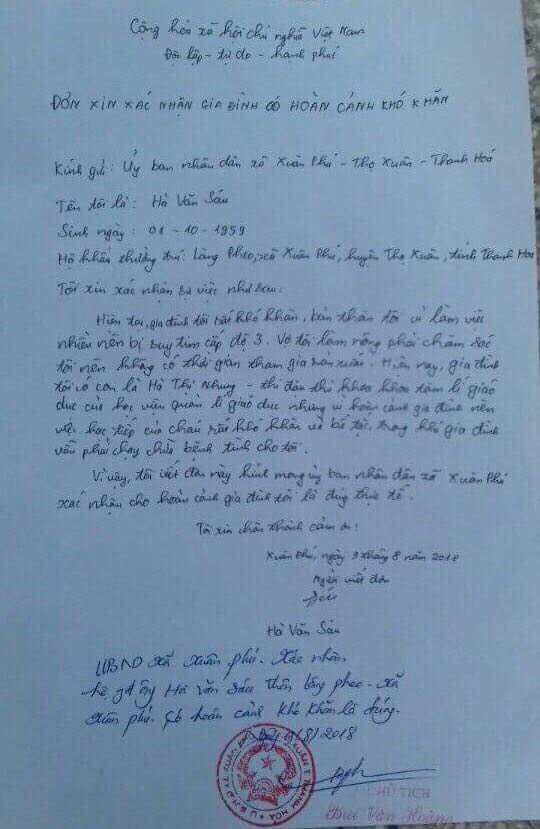 Cộng hòa xã hội chủ nghĩa Việt Nam
Độc lập - tự do - hạnh phúc
ĐƠN XIN XÁC NHẬN GIA ĐÌNH CÓ HOÀN CẢNH KHÓ KHĂN
Kính gửi: Ủy ban nhân dân xã Xuân Phú - Thọ Xuân - Thanh Hoá
Tên tôi là: Hà Văn Sáu
Sinh ngày: 01 - 10 - 1959
Hộ khẩu thường trú: Làng Pheo, xã Xuân Phú, huyện Thọ Xuân, tỉnh Thanh Hoá
Tôi xin xác nhận sự việc như sau:
Hiện tại, gia đình tôi rất khó khăn, bản thân tôi vì làm việc
nhiều nên bị suy tim cấp độ 3. Vợ tôi làm nông phải chăm sóc
tôi nên không có thời gian tham gia sản xuất. Hiện nay, gia đình
tôi có con là Hà Thị Nhung - thi đậu thủ khoa khoa tâm lí giáo
dục của học viện quản lí giáo dục nhưng vì hoàn cảnh gia đình nên
việc học tiếp của cháu rất khó khăn và bế tắc, trong khi gia đình
vẫn phải chạy chữa bệnh tình cho tôi.
Vì vậy, tôi viết đơn này kính mong ủy ban nhân dân xã Xuân Phú
xác nhận cho hoàn cảnh gia đình tôi là đúng thực tế.
Tôi xin chân thành cảm ơn:
Xuân Phú, ngày 9 tháng 8 năm 2018
Người viết đơn
Sáu
Hà Văn Sáu
UBND xã Xuân phú. Xác nhận
hộ gđ ông Hà Văn Sáu thôn làng pheo - xã
Xuân phú. Có hoàn cảnh khó khăn là đúng.
9/8/2018
CHỦ TỊCH
Bùi Văn Hoàng